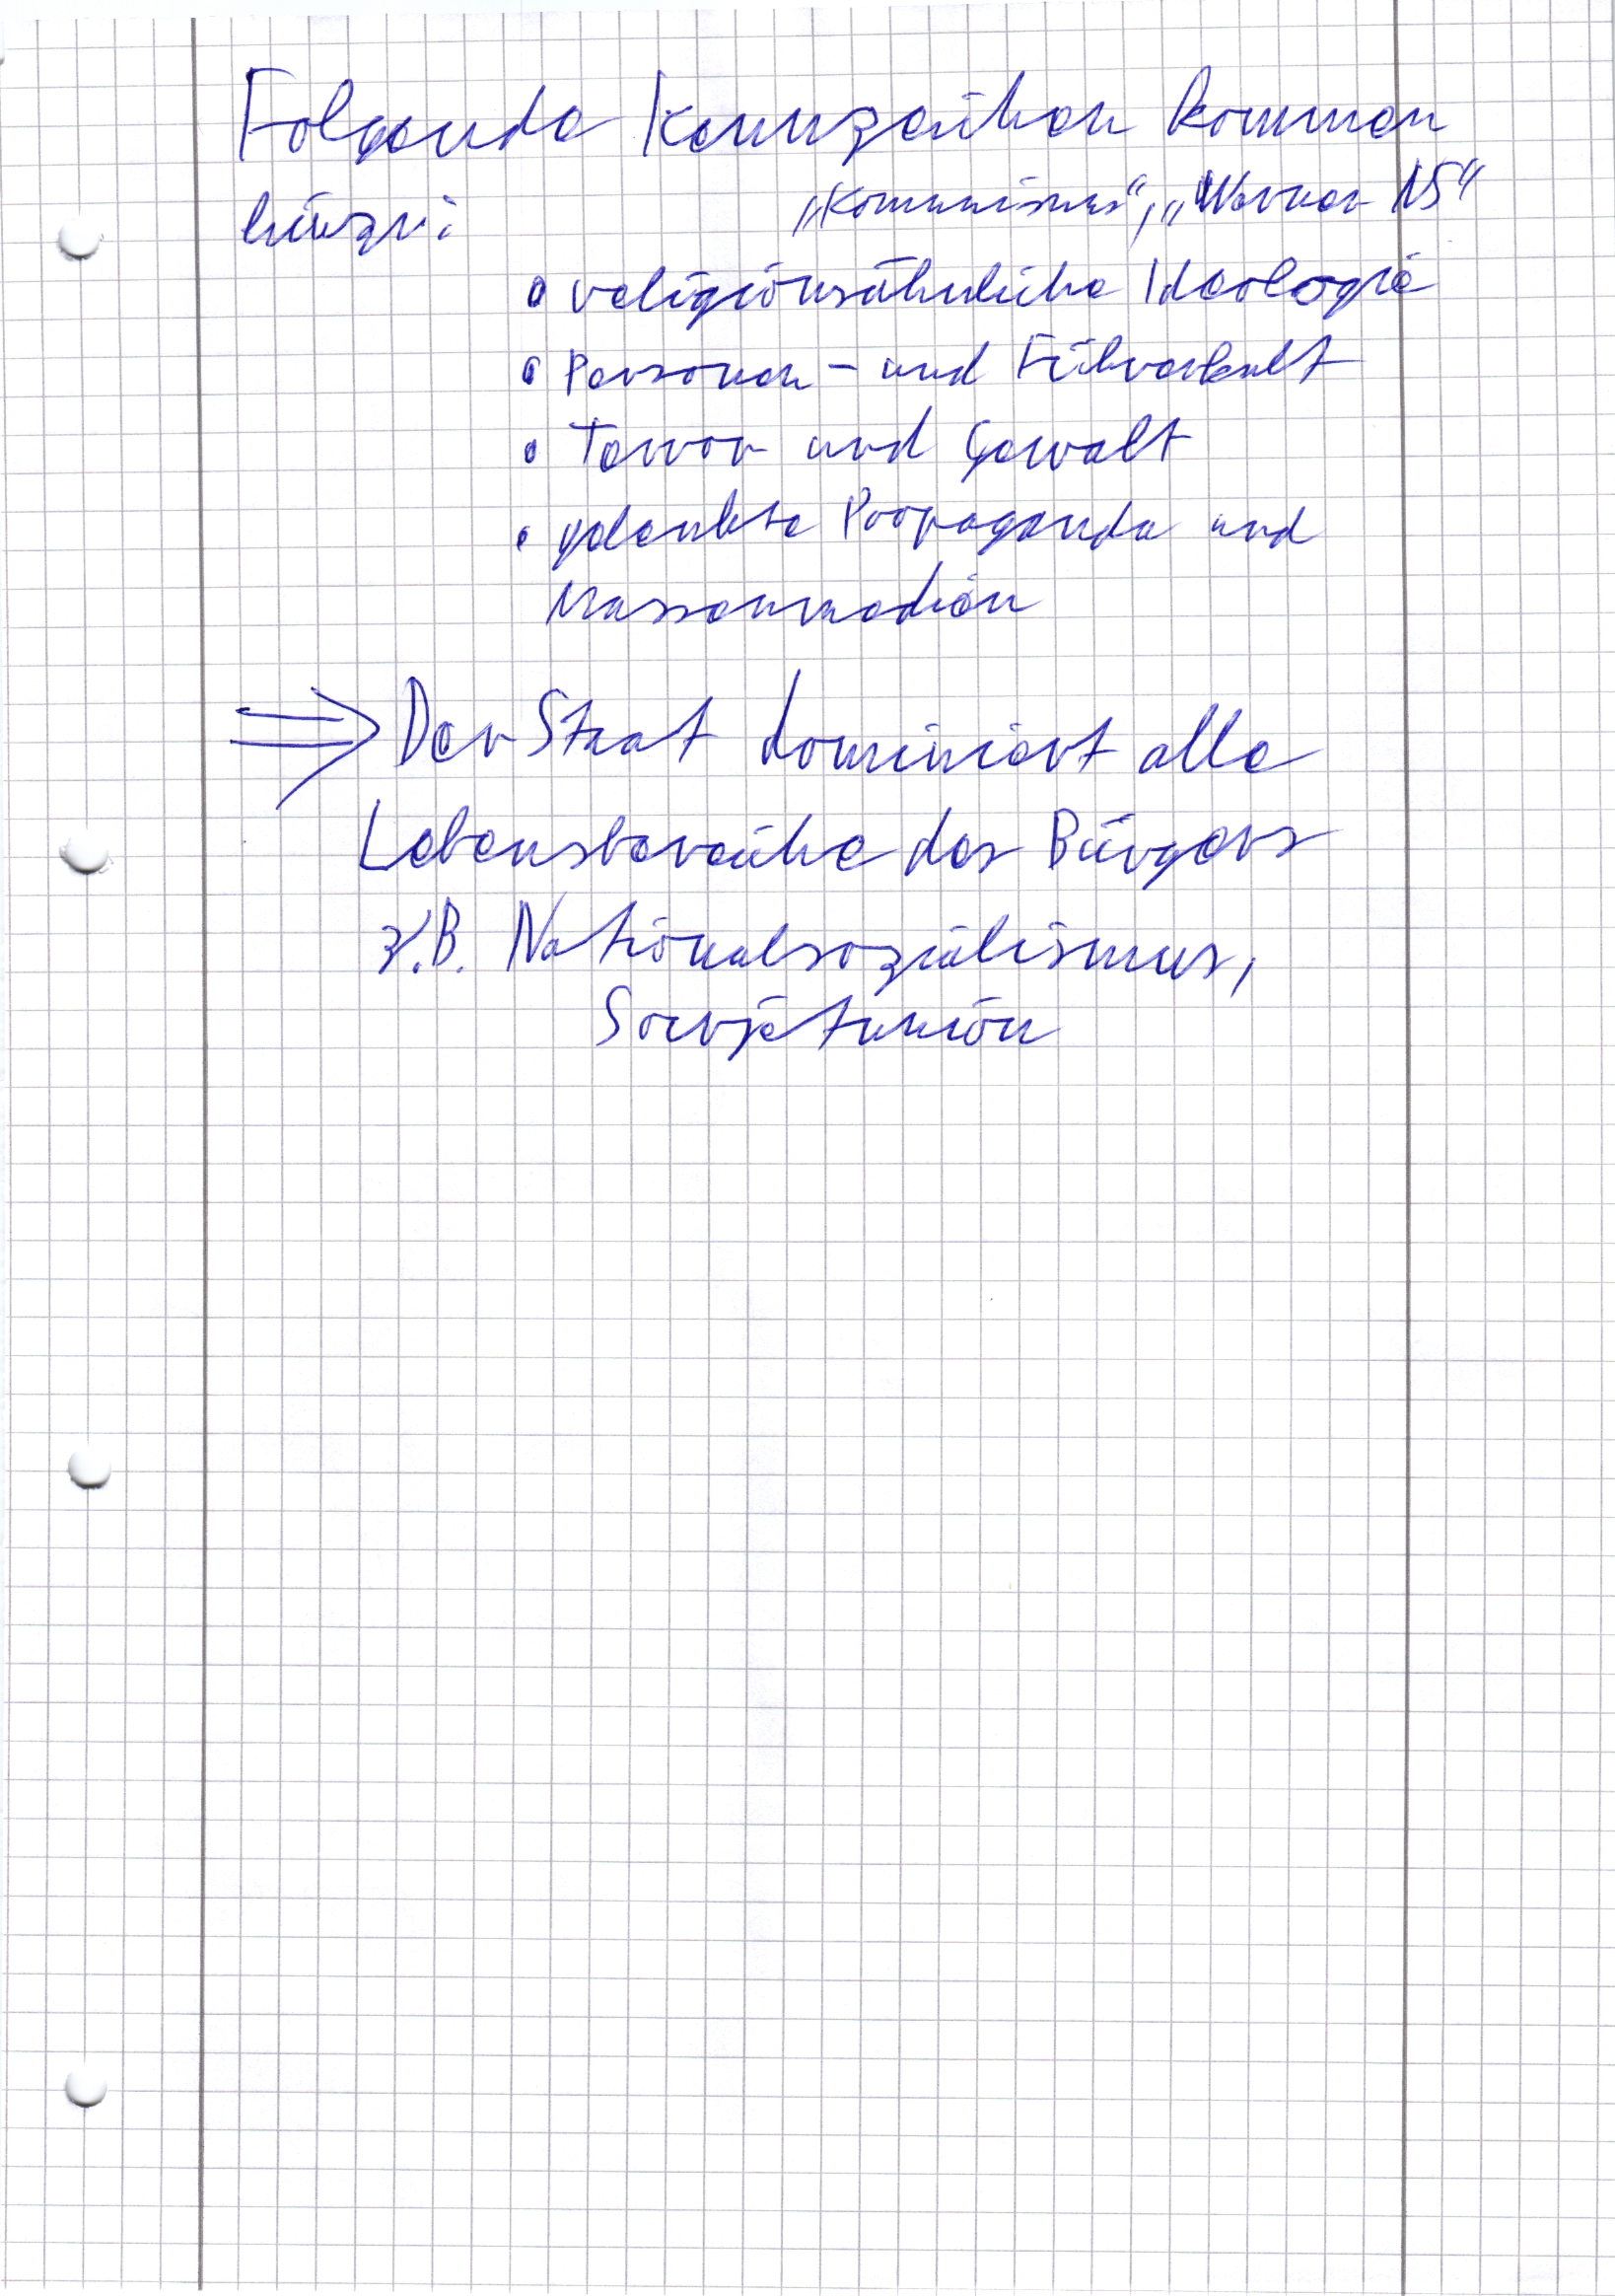 Folgende Kennzeichen kommen
hinzu:
„Kommunismus“, „ NS“
• religionsähnliche Ideologie
• Personen- und Führerkult
• Terror und Gewalt
• gelenkte Propaganda und
Massenmedien
⇒ Der Staat dominiert alle
Lebensbereiche des Bürgers
z.B. Nationalsozialismus,
Sowjetunion